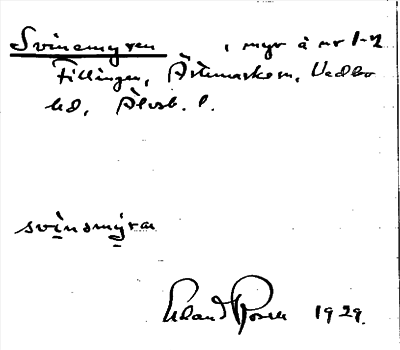 Svinemyren , myr å nr 1-2
Fillingen, Ärtemarks sn, Vedbo
hd, Älvsb. l.
svìnəmy̆ra
Erland Rosell 1929.